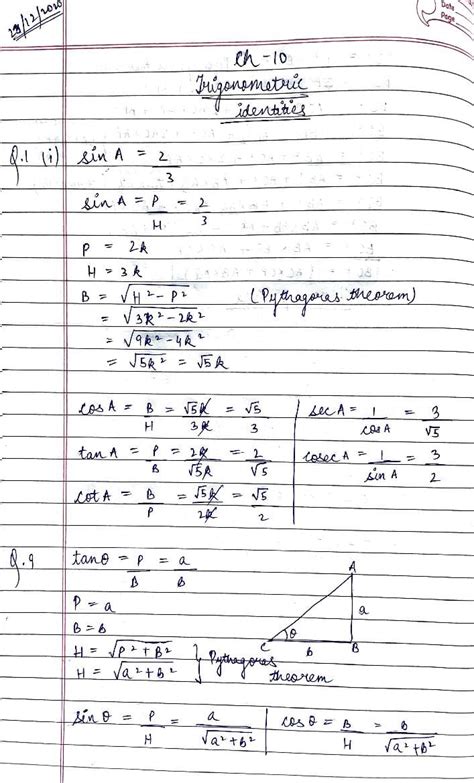 29/12/2020
Date
Page
Ch-10
Trigonometric
identities
Q.1 (i) sin A = 2/3
sin A = P/H = 2/3
P = 2k
H = 3k
B = √H² - P² (Pythagoras theorem)
= √3k² - 2k²
= √9k² - 4k²
= √5k² = √5k
cos A = B/H = √5k/3k = √5/3
sec A = 1/cos A = 3/√5
tan A = P/B = 2k/√5k = 2/√5
cosec A = 1/sin A = 3/2
cot A = B/P = √5k/2k = √5/2
Q.9 tanθ = P/B = a/b
P = a
B = b
H = √P² + B²
H = √a² + b²
} Pythagoras
theorem
A
a
C θ b B
sin θ = P/H = a/√a² + b²
cos θ = B/H = b/√a² + b²